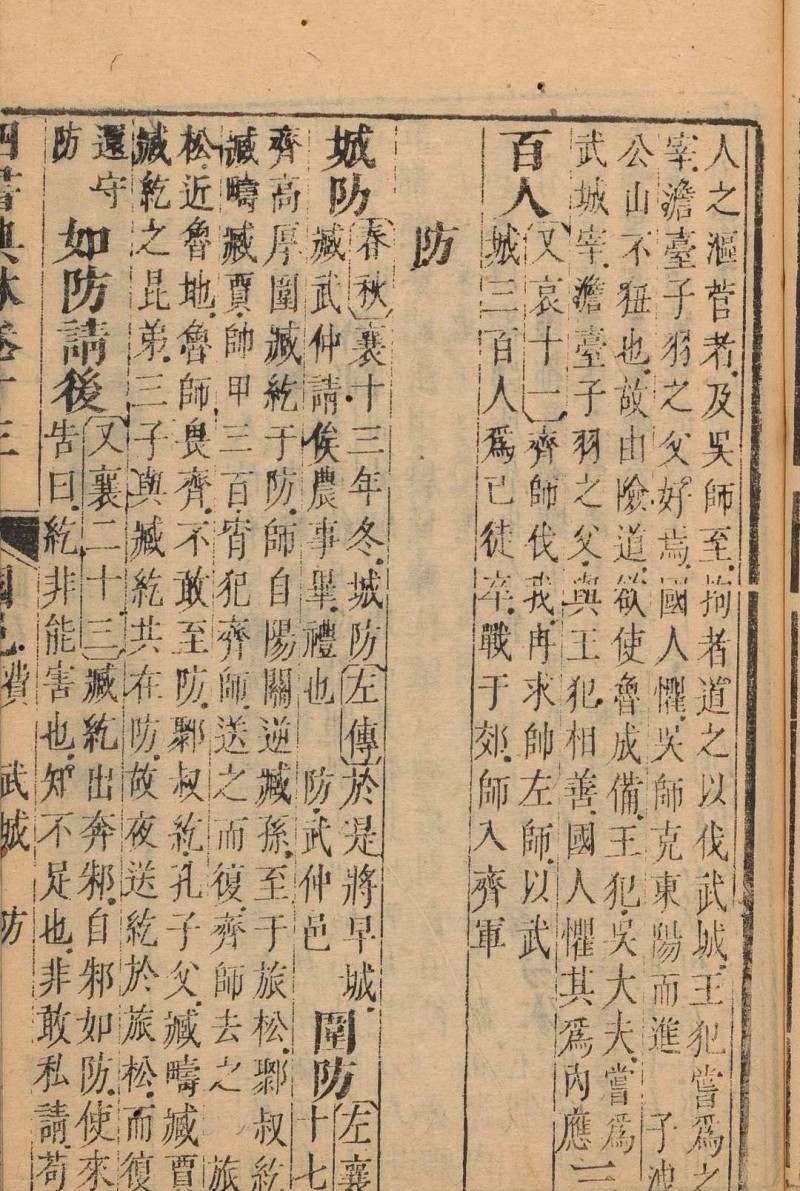 人之漚菅者及吳師至拘者道之以伐武城王犯嘗爲之
宰澹臺子羽之父好焉國人懼吳師克東陽而進 子洩
公山不狃也故由險道欲使魯成備王犯吳大夫嘗爲
武城宰澹臺子羽之父與王犯相善國人懼其爲內應 三
百人 又哀十一齊師伐我冉求帥左師以武
城三百人爲己徒卒戰于郊師入齊軍
防
城防 春秋襄十三年冬城防左傳於是將早城
臧武仲請俟農事畢禮也 防武仲邑
圍防 左襄十七
齊高厚圍臧紇于防師自陽關逆臧孫至于旅松郰叔紇
臧疇臧賈帥甲三百宵犯齊師送之而復齊師去之 旅
松近魯地魯師畏齊不敢至防郰叔紇孔子父臧疇臧賈
臧紇之昆弟三子與臧紇共在防故夜送紇於旅松而復
還守
防
如防請後 又襄二十三臧紇出奔邾自邾如防使來
告曰紇非能害也知不足也非敢私請苟
四書典林卷十三 國邑 費 武城 防